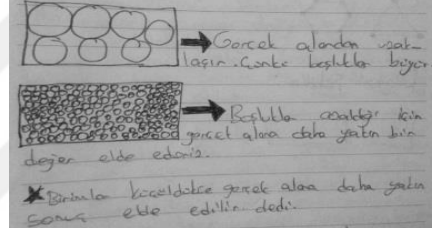 Gerçek alandan uzak-
laşırız. Çünkü boşluklar büyür
Boşluklar azaldığı için
gerçek alana daha yakın bir
değer elde ederiz.
Birimler küçüldükçe gerçek alana daha yakın
sonuç elde edilir dedi.